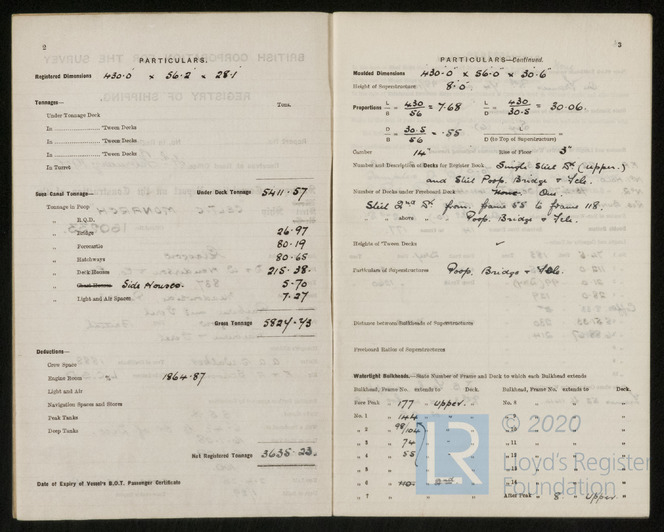 2
PARTICULARS.
Registered Dimensions 430·0' × 56·2' × 28·1'
Tonnages— Tons.
Under Tonnage Deck
In ........................ 'Tween Decks
In ........................ 'Tween Decks
In ........................ 'Tween Decks
In Turret
Suez Canal Tonnage— Under Deck Tonnage 5411·57
Tonnage in Poop
„ R.Q.D.
„ Bridge 26·97
„ Forecastle 80·19
„ Hatchways 80·65
„ Deck Houses 215·38·
„ Side Houses. 5·70
„ Light and Air Spaces 7·27
Gross Tonnage
Deductions—
Crew Space
Engine Room 1864·87
Light and Air
Navigation Spaces and Stores
Peak Tanks
Deep Tanks
Net Registered Tonnage 3635·23.
Date of Expiry of Vessel's B.O.T. Passenger Certificate
3
PARTICULARS—Continued.
Moulded Dimensions 430·0" × 56·0" × 30·6"
Height of Superstructure 8'·0"
Proportions L/B = 430/56 = 7·68 L/D = 430/30·5 = 30·06.
D/B = 30·5/56 = ·55 L/D (to Top of Superstructure) „
Camber 14" Rise of Floor 3"
Number and Description of Decks for Register Book Single Steel Dk (Upper.)
and Steel Poop, Bridge & Fcle.
Number of Decks under Freeboard Deck None. One.
Steel 2nd Dk from frame 55 to frame 118.
„ „ above „ Poop, Bridge & Fcle.
Heights of 'Tween Decks ✓
Particulars of Superstructures Poop, Bridge & Fcle.
Distance between Bulkheads of Superstructures
Freeboard Ratios of Superstructures
Watertight Bulkheads.—State Number of Frame and Deck to which each Bulkhead extends
Bulkhead, Frame No. extends to Deck. Bulkhead, Frame No. extends to Deck.
Fore Peak 177 „ Upper. „ No. 8 „ „
No. 1 144 „ „ „ 9 „ „
„ 2 98/104 „ „ 10 „ „
„ 3 74 „ „ 11 „ „
„ 4 55 „ „ 12 „ „
„ 5 „ „ 13 „ „
„ 6 „ 2nd „ 14 „ „
„ 7 „ „ After Peak 8 „ Upper. „
LR
© 2020
Lloyd's Register
Foundation